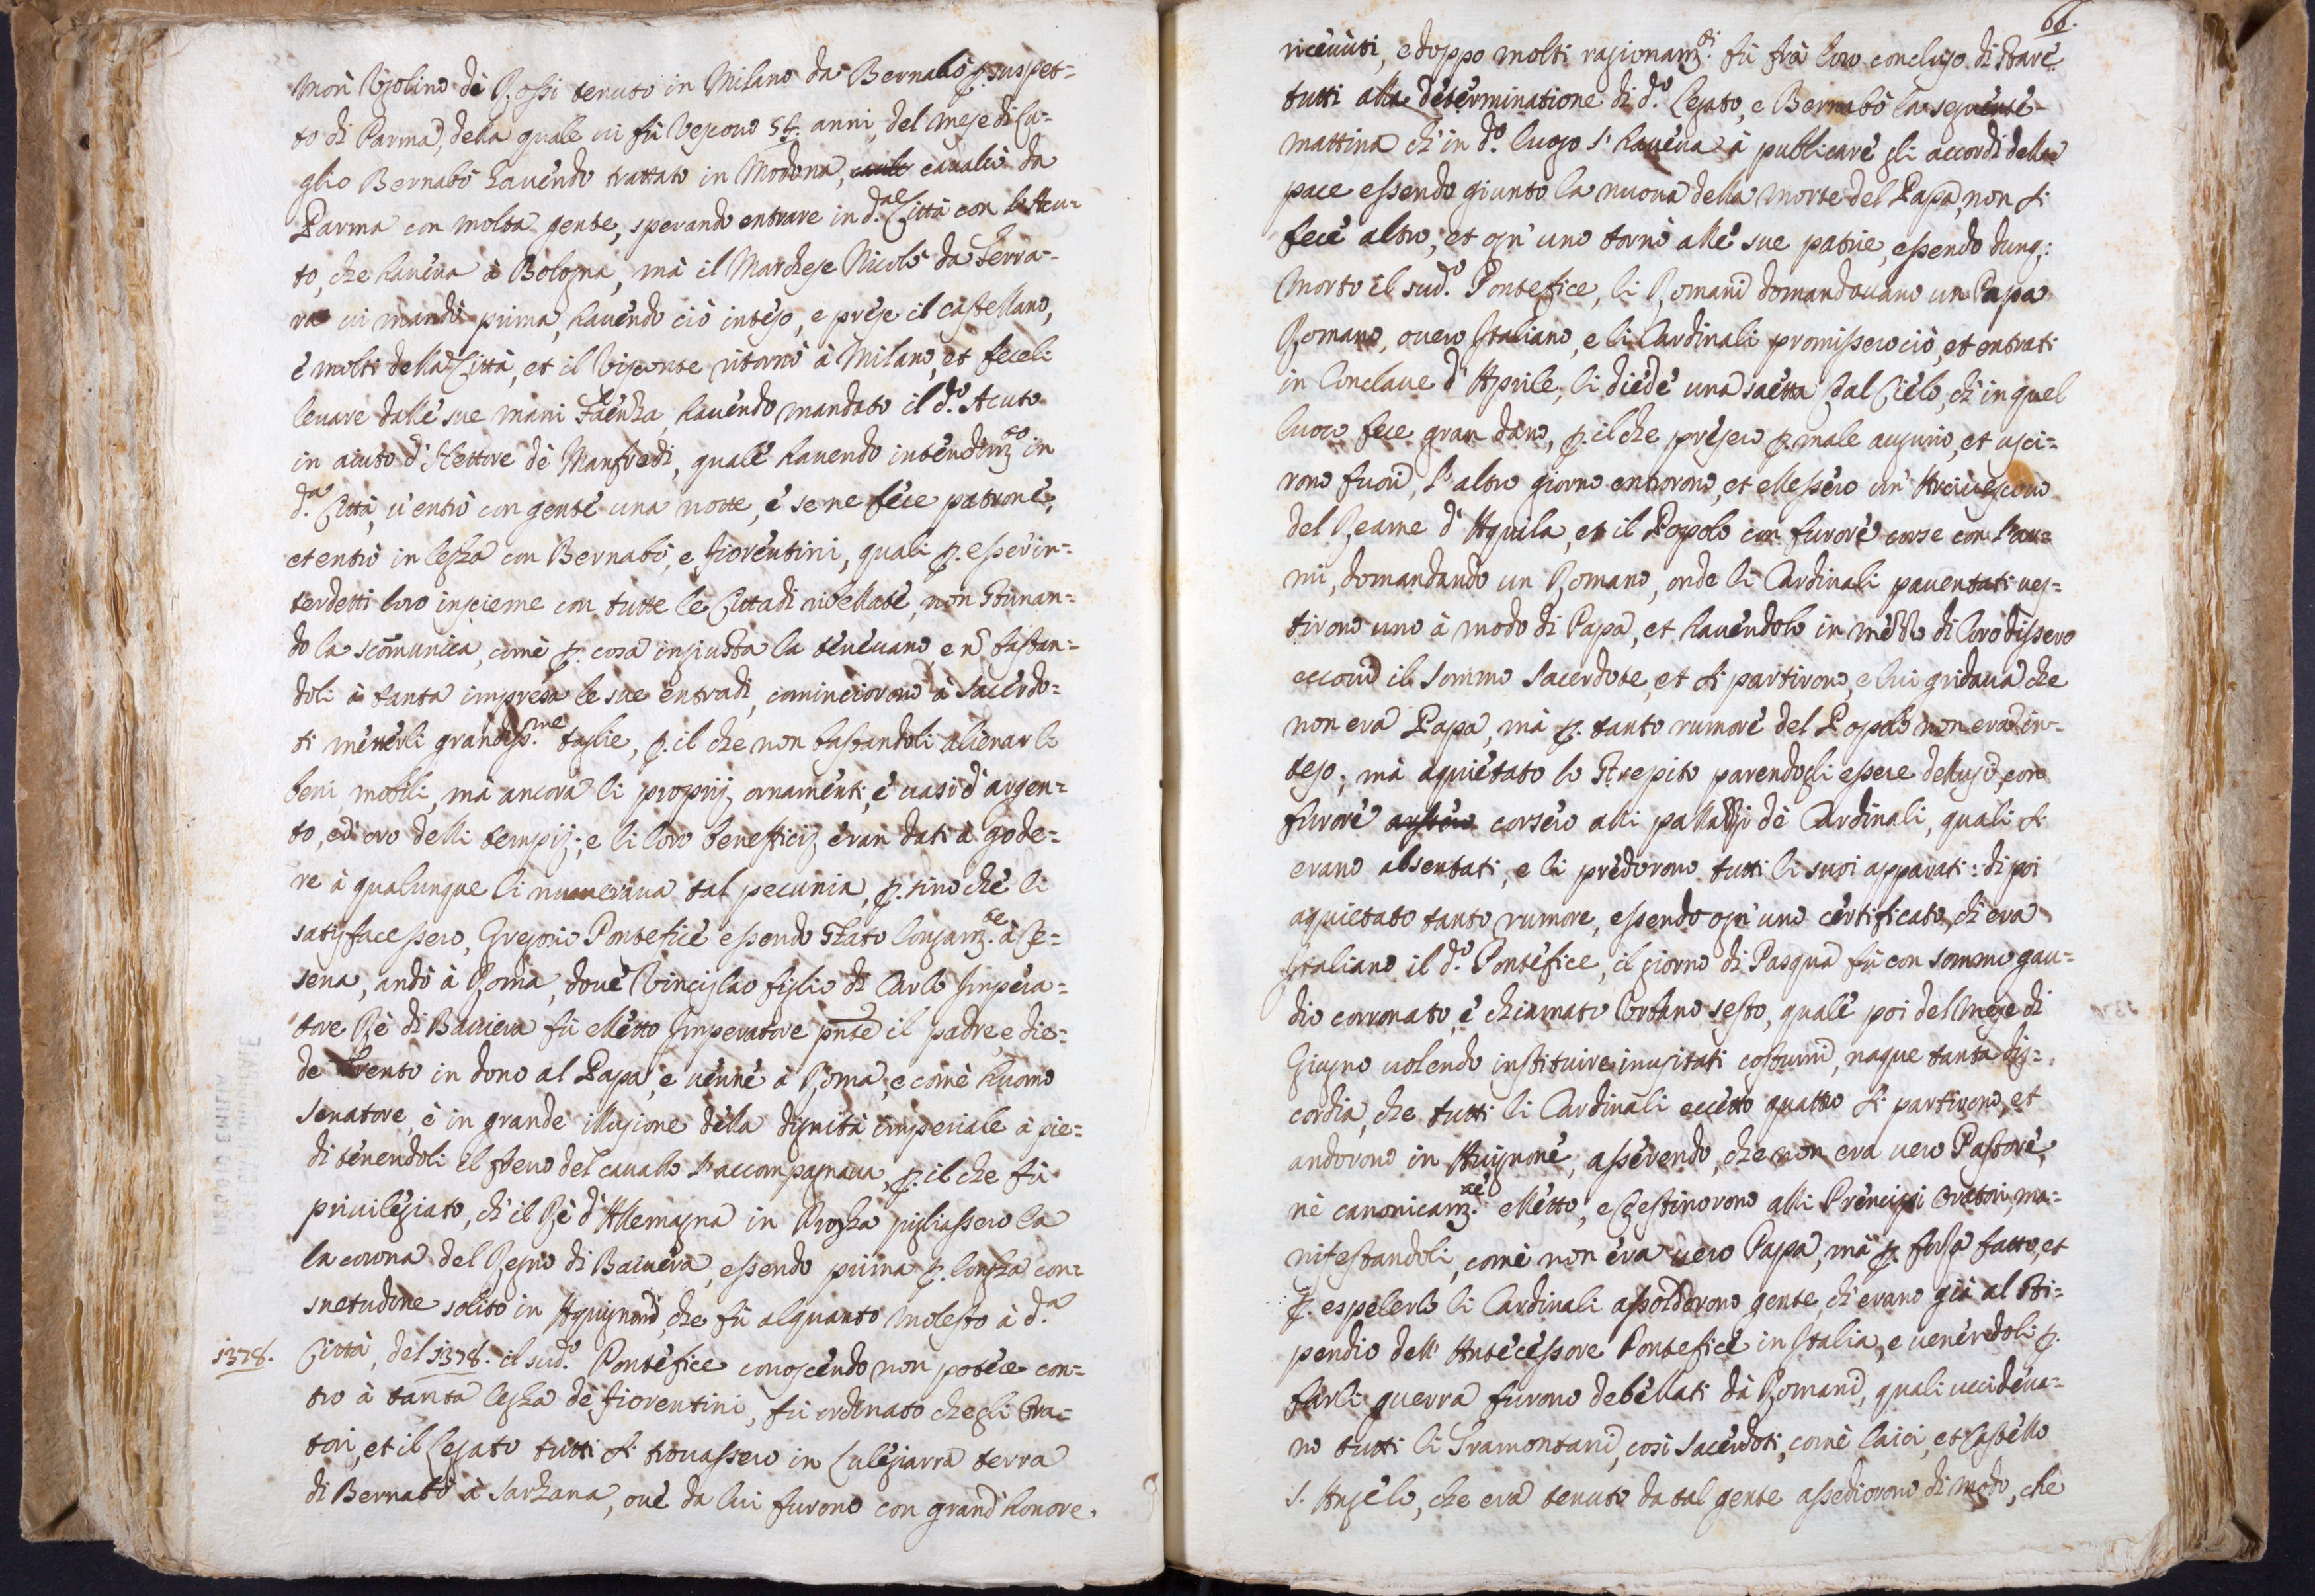 morì Ugolino dè Rossi tenuto in Milano da Bernabò p. suspet=
to di Parma, della quale vi fù Vescovo 54. anni, del mese di Lu=
glio Bernabò havendo trattato in Modona, cavalcò da
Parma con molta gente, sperando entrare in d.ª Città con l'Acu=
to, che haveva à Bologna, mà il Marchese Nicolò da Ferra=
ra vi mandò prima, havendo ciò inteso, e prese il Castellano,
è molti della Città, et il Visconte ritornò à Milano, et feceli
levare dalle sue mani Faenza, havendo mandato il d.º Acuto
in aiuto d'Hettore dè Manfredi, quale havendo intendim.to in
d.ª Città, v'entrò con gente una notte, è se ne fece patrone;
et entrò in legha con Bernabò, e fiorentini, quali p. esser in=
terdetti loro insieme con tutte le Cittadi ribellate, non stiman=
do la scomunica, come p. cosa ingiusta la tenevano, e nõ bastan=
doli à tanta impresa le sue entradi, cominciorono à sacerdo=
ti metterli grandiss.me taglie, p. il che non bastandoli alienar li
beni mobili, mà ancora li proprij ornamenti, è vasi d'argen=
to, ed'oro delli tempij; e li loro benefficij eran dati à gode=
re à qualunque li numerava tal pecunia, p. sino chè li
satisfacessero, Gregorio Pontefice essendo stato longam.te à Ce=
sena, andò à Roma, dove Vincislao figlio di Carlo Impera=
tore Rè di Baviera fù elletto Imperatore pnte il padre, e die=
de Trento in dono al Papa, e venne à Roma, e come huomo
senatore, è in grande illusione della dignità imperiale à pie=
di tenendoli il freno del cavallo l'accompagnava, p. il che fù
privilegiato, ch'il Rè d'Allemagna in Progha pigliassero la
la corona del Regno di Baivera, essendo prima p. longha con=
suetudine solito in Aquignond, che fù alquanto molesto à d.ª
1378. Città, del 1378. il sud.º Pontefice conoscendo non potere con=
tro à tanta legha dè fiorentini, fù ordinato che gli Ora=
tori, et il Legato tutti si trovassero in Lulegiarra terra
di Bernabò à Sarzana, ovè da lui furono con grand'honore.
66.
ricevuti, e doppo molti ragionam.ti fù frà loro concluso di stare
tutti alla determinatione di d.º Legato, e Bernabò la seguente
mattina ch'in d.º luogo s'haveva à publicare gli accordi della
pace essendo giunto la nuova della morte del Papa, non si
fece altro, et ogn'uno tornò alle sue patrie, essendo dunq:
morto il sud.º Pontefice, li Romani domandavano un Papa
Romano, overo Italiano, e li Cardinali promissero ciò, et entrati
in Conclave d'Aprile, li diede una saetta dal Cielo, ch'in quel
luoco fece gran dano, p. il che presero p. male augurio, et usci=
rono fuori, l'altro giorno entrorono, et ellessero un'Arcivescovo
del Reame d'Aquila, et il Popolo con furore corse con l'ar=
mi, domandando un Romano, onde li Cardinali paventati ves=
tirono uno à modo di Papa, et havendolo in mezzo di loro dissero
eccovi il sommo Sacerdote, et si partirono, e lui gridava che
non era Papa, mà p. tanto rumore del Popolo non era in=
teso; mà aquietato lo strepito parendogli essere dellusi, con
furore corsero alli pallazzi dè Cardinali, quali si
erano absentati, e li predorono tutti li suoi apparati: di poi
aquietato tanto rumore, essendo ogn'uno certificato, ch'era
Italiano il d.º Pontefice, il giorno di Pasqua fù con sommo gau=
dio corronato, è chiamato Urbano sesto, quale poi del mese di
Giugno volendo instituire inusitati costumi, naque tanta dis=
cordia, che tutti li Cardinali eccetto quattro si partirono, et
andorono in Avignone, asserendo, che non era vero Pastore,
nè canonicam.te elletto, e destinorono alli Prencipi Oratori, ma=
nifestandoli, come non era vero Papa, mà p. forza fatto, et
p. espelerlo li Cardinali assoldorono gente, ch'erano già al sti=
pendio dell'Antecessore Pontefice in Italia, e venendoli p.
farli guerra furono debellati dà Romani, quali uccideva=
no tutti li Tramontani, così Sacerdoti, come laici, et Castello
S. Angelo, che era tenuto da tal gente assediorono di modo, che